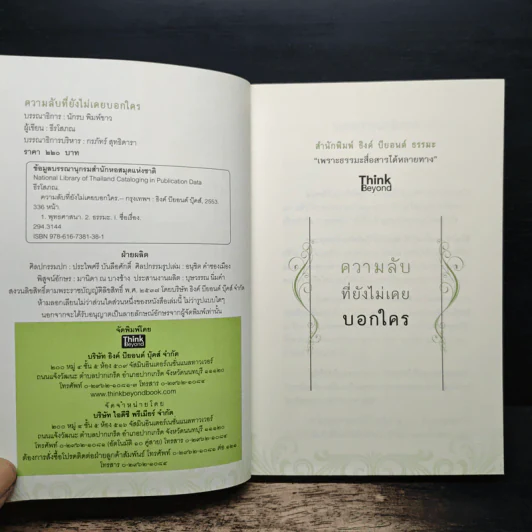 ความลับที่ยังไม่เคยบอกใคร
บรรณาธิการ : นักรบ พิมพ์ขาว
ผู้เขียน : ธีรโสภณ
บรรณาธิการบริหาร : กรภัทร์ สุทธิดารา
ราคา ๒๒๐ บาท
ข้อมูลบรรณานุกรมสำนักหอสมุดแห่งชาติ
National Library of Thailand Cataloging in Publication Data
ธีรโสภณ.
ความลับที่ยังไม่เคยบอกใคร.-- กรุงเทพฯ : ธิงค์ บียอนด์ บุ๊คส์, 2553.
336 หน้า.
1. พุทธศาสนา. 2. ธรรมะ. I. ชื่อเรื่อง.
294.3144
ISBN 978-616-7381-38-1
ฝ่ายผลิต
ศิลปกรรมปก : ประไพศรี บันลือศักดิ์ ศิลปกรรมรูปเล่ม : อนุชิต คำซองเมือง
พิสูจน์อักษร : มานิตา บางช้าง ประสานงานผลิต : บุษวรรณ
สงวนลิขสิทธิ์ตามพระราชบัญญัติลิขสิทธิ์ พ.ศ. ๒๕๓๗ โดยบริษัท ธิงค์ บียอนด์ บุ๊คส์ จำกัด
ห้ามลอกเลียนไม่ว่าส่วนใดส่วนหนึ่งของหนังสือเล่มนี้ ไม่ว่ารูปแบบใดๆ
นอกจากจะได้รับอนุญาตเป็นลายลักษณ์อักษรจากผู้จัดพิมพ์เท่านั้น
จัดพิมพ์โดย
Think
Beyond
บริษัท ธิงค์ บียอนด์ บุ๊คส์ จำกัด
๒๐๐ หมู่ ๔ ชั้น ๕ ห้อง ๕๐๙ จัสมินอินเตอร์เนชั่นแนลทาวเวอร์
ถนนแจ้งวัฒนะ ตำบลปากเกร็ด อำเภอปากเกร็ด จังหวัดนนทบุรี ๑๑๑๒๐
โทรศัพท์ ๐-๒๙๖๒-๑๐๘๑-๓ โทรสาร ๐-๒๙๖๒-๑๐๘๔
www.thinkbeyondbook.com
จัดจำหน่ายโดย
บริษัท ไอดีซี พรีเมียร์ จำกัด
๒๐๐ หมู่ ๔ ชั้น ๑๙ ห้อง ๑๙๐๑ จัสมินอินเตอร์เนชั่นแนลทาวเวอร์
ถนนแจ้งวัฒนะ ตำบลปากเกร็ด อำเภอปากเกร็ด จังหวัดนนทบุรี ๑๑๑๒๐
โทรศัพท์ ๐-๒๙๖๒-๑๐๘๑ (อัตโนมัติ ๑๐ คู่สาย) โทรสาร ๐-๒๙๖๒-๑๐๘๔
ต้องการสั่งซื้อโปรดติดต่อฝ่ายลูกค้าสัมพันธ์ โทรศัพท์ ๐-๒๙๖๒-๑๐๘๑ ต่อ
โทรสาร ๐-๒๙๖๒-๑๐๘๔
สำนักพิมพ์ ธิงค์ บียอนด์ ธรรมะ
"เพราะธรรมะสื่อสารได้หลายทาง"
Think
Beyond
ความลับ
ที่ยังไม่เคย
บอกใคร